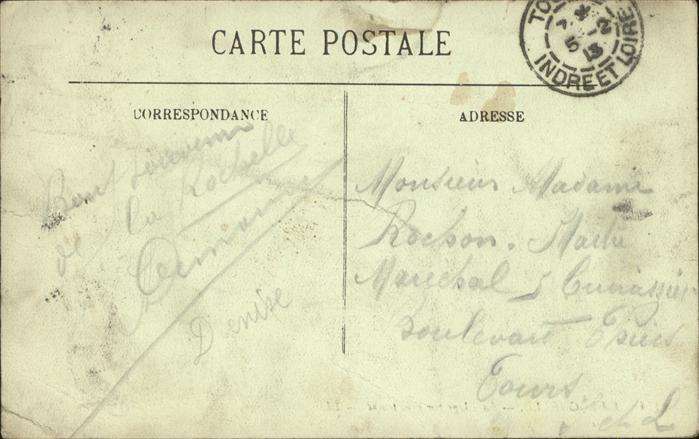 CARTE POSTALE
TO
5 - 2
13
INDRE ET LOIRE
CORRESPONDANCE
Bons souvenirs
de La Rochelle
Denise
ADRESSE
Monsieur Madame
Rochon
Marechal 5
boulevard Thiers
Tours
et L